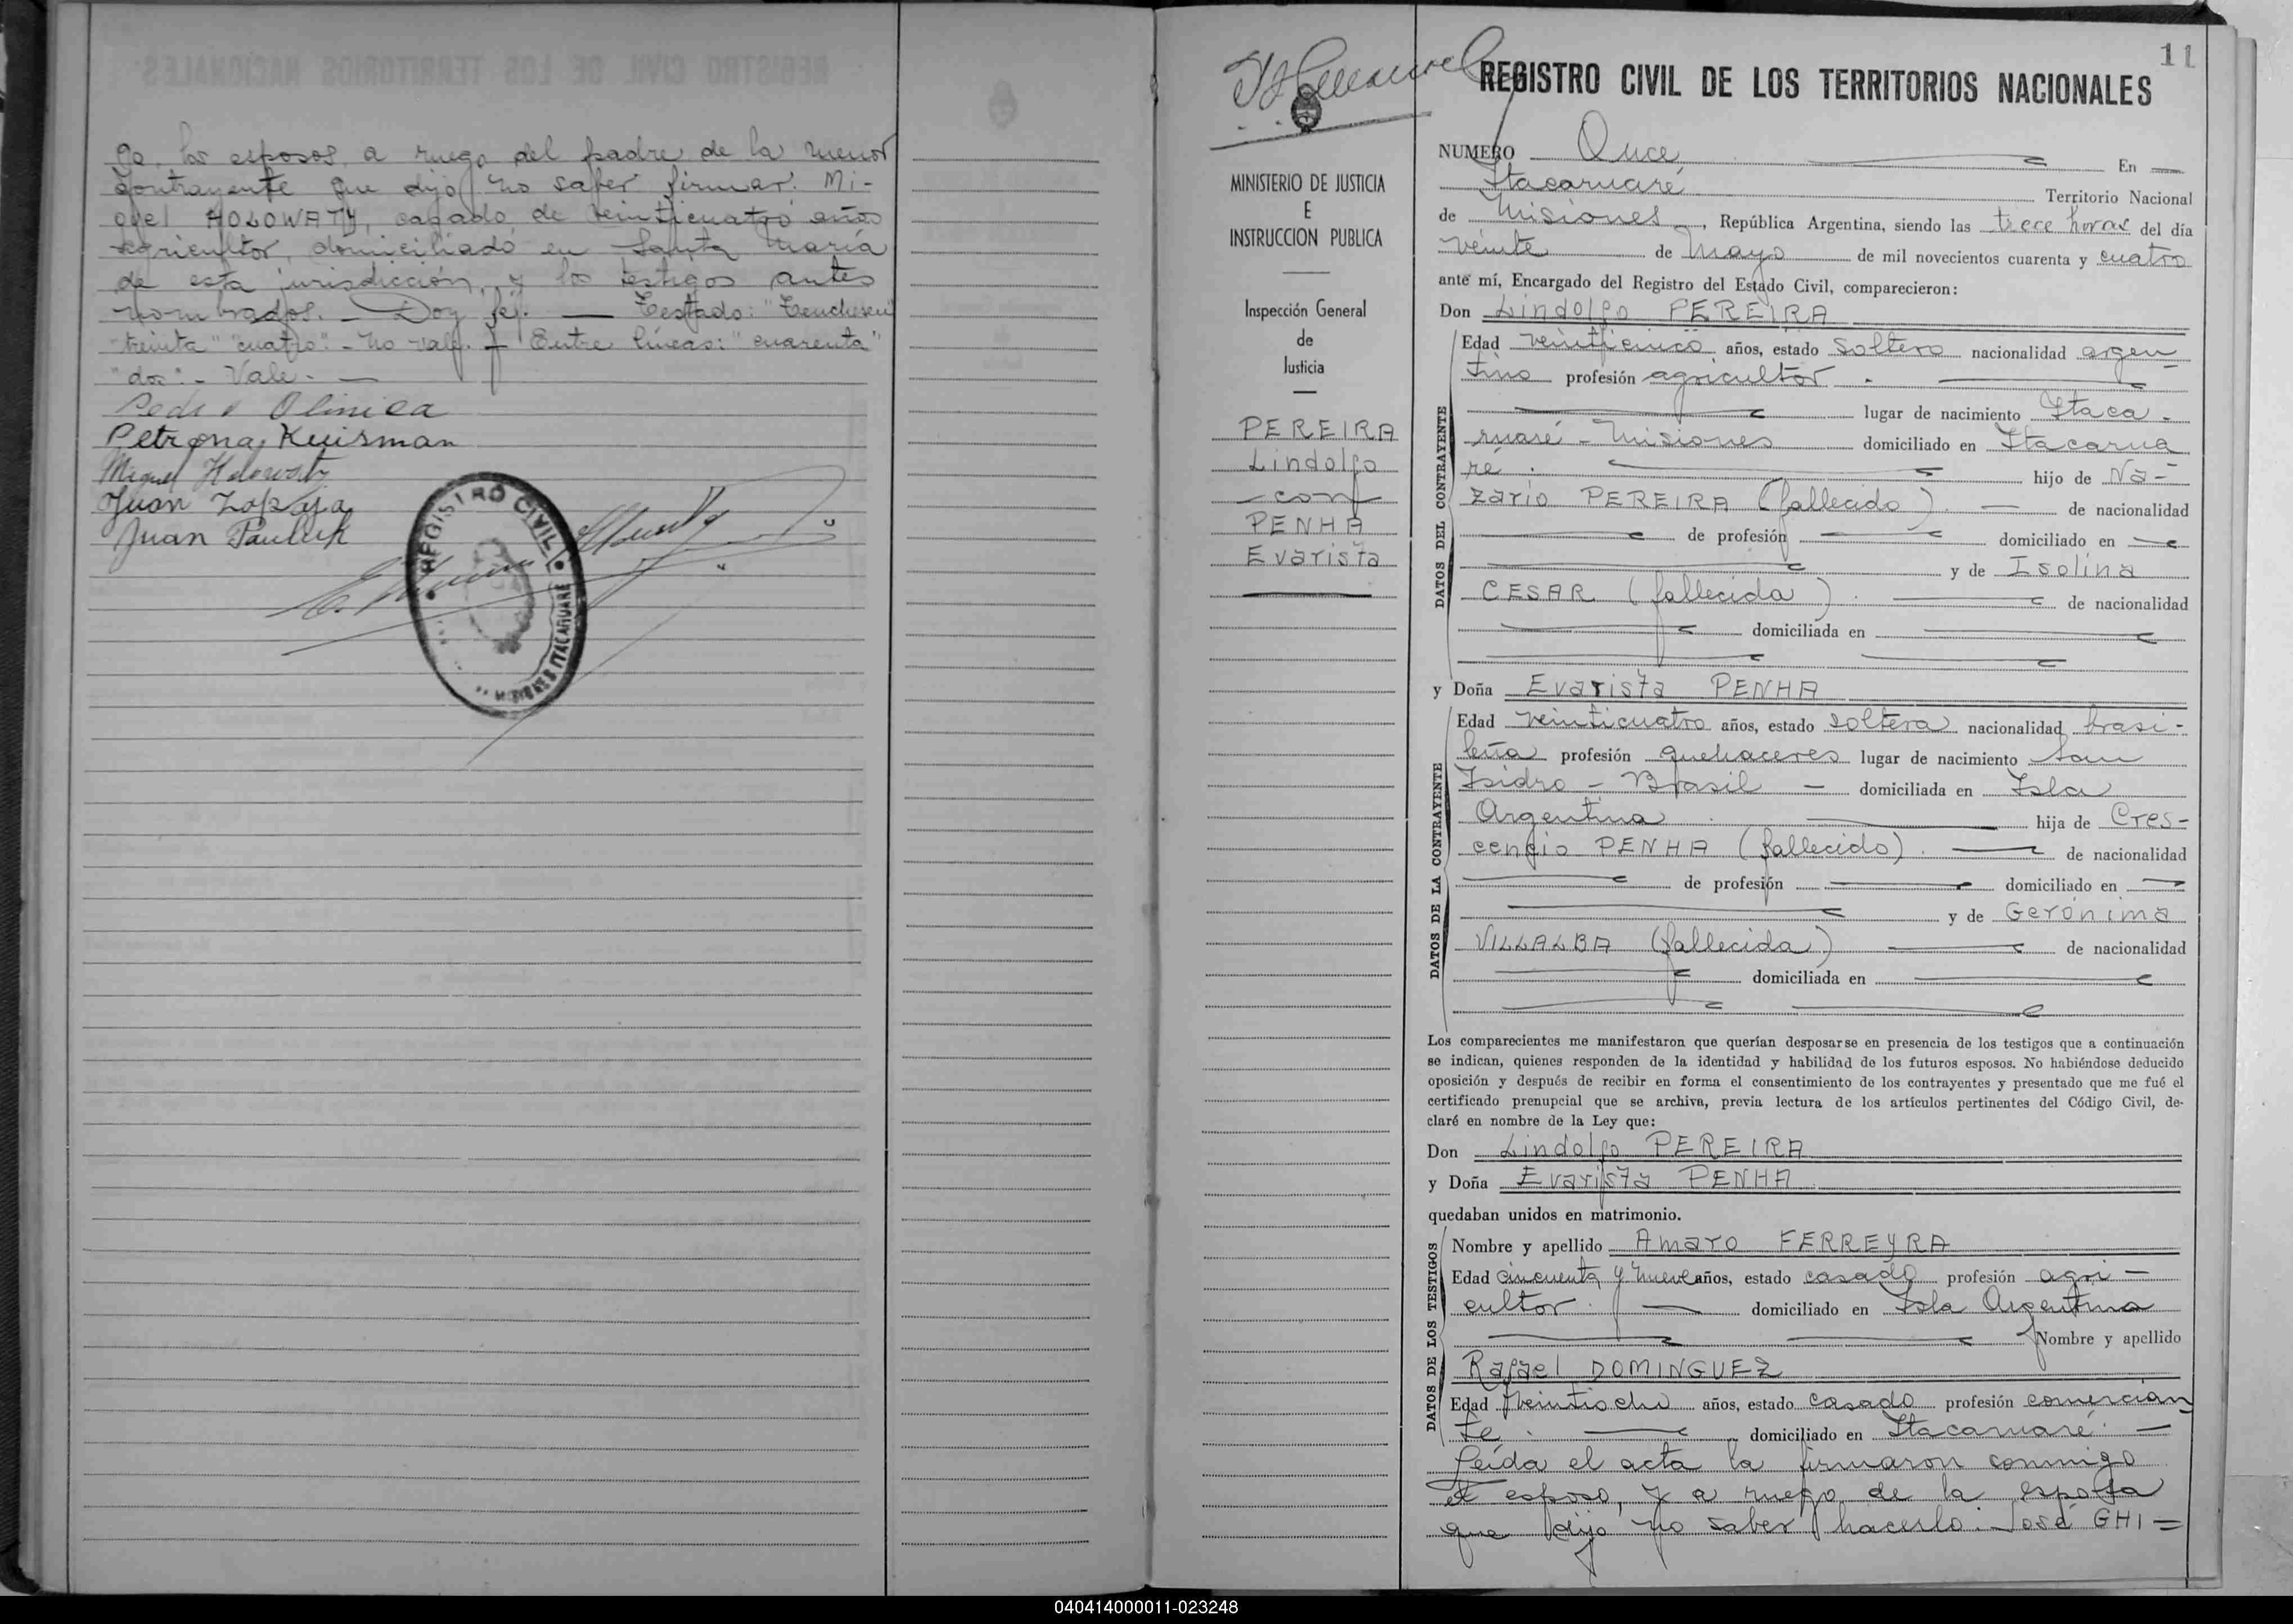 go, los esposos, a ruego del padre de la menor
contrayente que dijo no saber firmar. Mi-
guel HOLOWATY, casado, de veinticuatro años
agricultor, domiciliado en Santa María
de esta jurisdicción, y los testigos antes
nombrados. — Doy fe. — Testado:
"treinta" "cuatro". - No vale. — Entre líneas: "cuarenta"
"dos". - Vale. —
Pedro Olinica
Petrona Kuisman
Miguel Holowaty
Juan Zopaja
Juan Pauluk
REGISTRO CIVIL
MISIONES ITACARUARÉ
11
REGISTRO CIVIL DE LOS TERRITORIOS NACIONALES
MINISTERIO DE JUSTICIA
E
INSTRUCCION PUBLICA
Inspección General
de
Justicia
PEREIRA
Lindolfo
- con -
PENHA
Evarista
NUMERO Once En
Itacaruaré Territorio Nacional
de Misiones, República Argentina, siendo las trece horas del día
veinte de Mayo de mil novecientos cuarenta y cuatro
ante mí, Encargado del Registro del Estado Civil, comparecieron:
Don Lindolfo PEREIRA
DATOS DEL CONTRAYENTE
Edad veinticinco años, estado soltero nacionalidad argen-
tino profesión agricultor.
lugar de nacimiento Itaca-
ruaré - Misiones domiciliado en Itacarua
ré. hijo de Na-
zario PEREIRA (fallecido). de nacionalidad
de profesión domiciliado en
y de Isolina
CESAR (fallecida). de nacionalidad
domiciliada en
y Doña Evarista PENHA
DATOS DE LA CONTRAYENTE
Edad veinticuatro años, estado soltera nacionalidad brasi-
leña profesión quehaceres lugar de nacimiento San
Isidro - Brasil - domiciliada en Isla
Argentina. hija de Cres-
cencio PENHA (fallecido). de nacionalidad
de profesión domiciliado en
y de Gerónima
VILLALBA (fallecida) de nacionalidad
domiciliada en
Los comparecientes me manifestaron que querían desposarse en presencia de los testigos que a continuación
se indican, quienes responden de la identidad y habilidad de los futuros esposos. No habiéndose deducido
oposición y después de recibir en forma el consentimiento de los contrayentes y presentado que me fué el
certificado prenupcial que se archiva, previa lectura de los artículos pertinentes del Código Civil, de-
claré en nombre de la Ley que:
Don Lindolfo PEREIRA
y Doña Evarista PENHA
quedaban unidos en matrimonio.
DATOS DE LOS TESTIGOS
Nombre y apellido Amaro FERREYRA
Edad cincuenta y nueve años, estado casado profesión agri-
cultor. domiciliado en Isla Argentina
Nombre y apellido
Rafael DOMINGUEZ
Edad veintiocho años, estado casado profesión comercian
te. domiciliado en Itacaruaré. -
Leída el acta la firmaron conmigo
el esposo, y a ruego de la esposa
que dijo no saber hacerlo. José GHI=
040414000011-023248